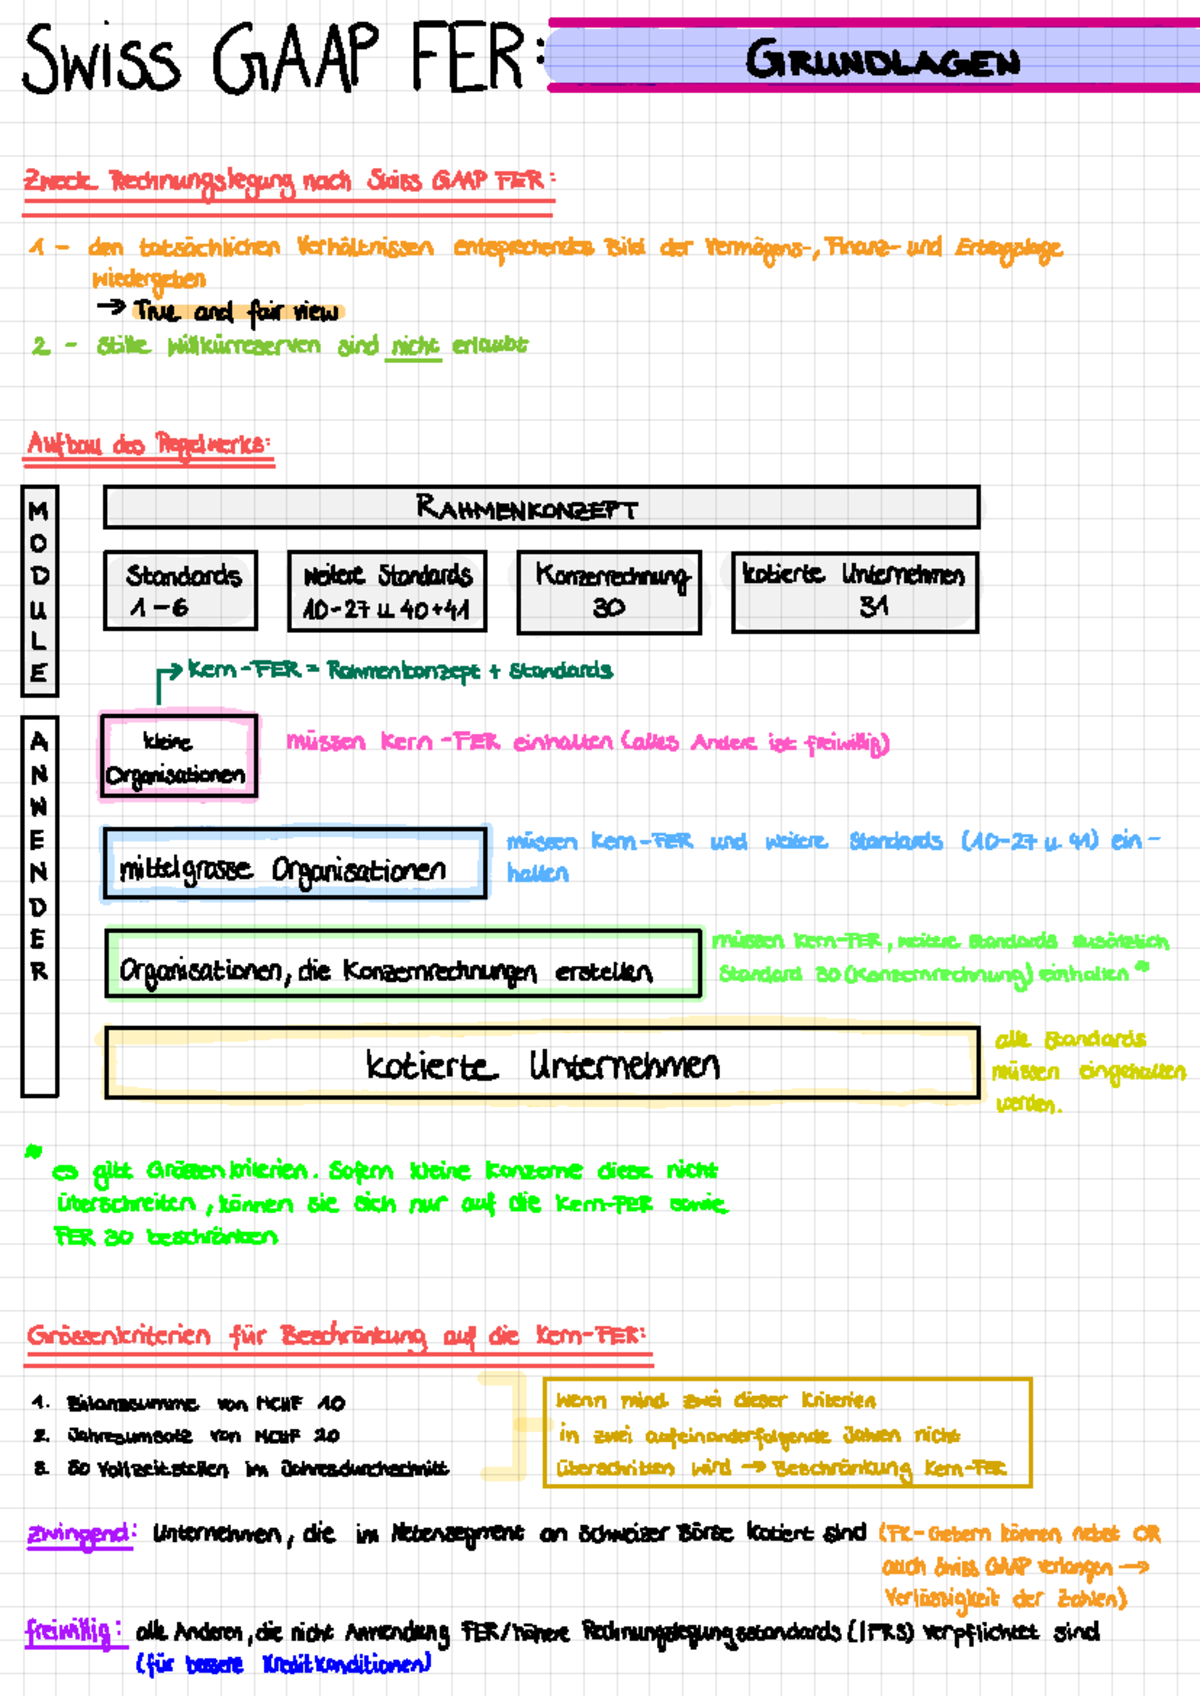 Swiss GAAP FER: GRUNDLAGEN
Zweck Rechnungslegung nach Swiss GAAP FER:
1 - den tatsächlichen Verhältnissen entsprechendes Bild der Vermögens-, Finanz- und Ertragslage
wiedergeben
→ True and fair view
2 - Stille Willkürreserven sind nicht erlaubt
Aufbau des Regelwerks:
MODULE
RAHMENKONZEPT
Standards
1-6
weitere Standards
10-27 u 40+41
Konzernrechnung
30
kotierte Unternehmen
31
→ Kern-FER = Rahmenkonzept + Standards
ANWENDER
kleine
Organisationen
müssen Kern-FER einhalten (alles Andere ist freiwillig)
mittelgrosse Organisationen
müssen Kern-FER und weitere Standards (10-27 u. 41) ein-
halten
Organisationen, die Konzernrechnungen erstellen
müssen Kern-FER, weitere Standards zusätzlich
Standard 30 (Konzernrechnung) einhalten *
kotierte Unternehmen
alle Standards
müssen eingehalten
werden.
* es gibt Grössenkriterien. Sofern kleine Konzerne diese nicht
überschreiten, können sie sich nur auf die Kern-FER sowie
FER 30 beschränken
Grössenkriterien für Beschränkung auf die Kern-FER:
1. Bilanzsumme von MCHF 10
2. Jahresumsatz von MCHF 20
3. 50 Vollzeitstellen im Jahresdurchschnitt
Wenn mind. zwei dieser Kriterien
in zwei aufeinanderfolgende Jahren nicht
überschritten wird → Beschränkung Kern-FER
zwingend: Unternehmen, die im Nebensegment an Schweizer Börse kotiert sind (FK-Gebern können nebst OR
auch Swiss GAAP verlangen →
Verlässigkeit der Zahlen)
freiwillig: alle Anderen, die nicht Anwendung FER/höhere Rechnungslegungsstandards (IFRS) verpflichtet sind
(für bessere Kreditkonditionen)